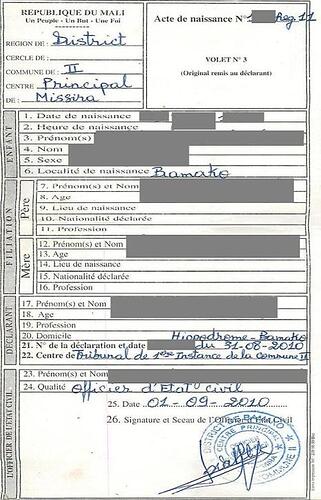 REPUBLIQUE DU MALI
Un Peuple - Un But - Une Foi
Acte de naissance N° Reg 11
REGION DE: District
CERCLE DE:
COMMUNE DE: II
CENTRE Principal
DE: Missira
VOLET N° 3
(Original remis au déclarant)
ENFANT
1. Date de naissance
2. Heure de naissance
3. Prénom(s)
4. Nom
5. Sexe
6. Localité de naissance Bamako
FILIATION
Père
7. Prénom(s) et Nom
8. Age
9. Lieu de naissance
10. Nationalité déclarée
11. Profession
Mère
12. Prénom(s) et Nom
13. Age
14. Lieu de naissance
15. Nationalité déclarée
16. Profession
DECLARANT
17. Prénom(s) et Nom
18. Age
19. Profession
20. Domicile Hippodrome - Bamako
21. N° de la déclaration et date du 31-08-2010
22. Centre de Tribunal de 1ère Instance de la Commune II
L'OFFICIER DE L'ETAT CIVIL
23. Prénom(s) et Nom
24. Qualité Officier d'Etat Civil
25. Date 01-09-2010
26. Signature et Sceau de l'Officier d'Etat Civil
DISTRICT DE BAMAKO
CENTRE PRINCIPAL
COMMUNE II